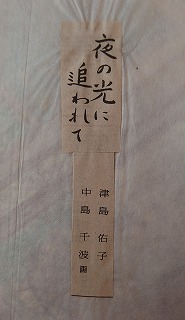 夜の光に
追われて
津島 佑子
中島 千波 画